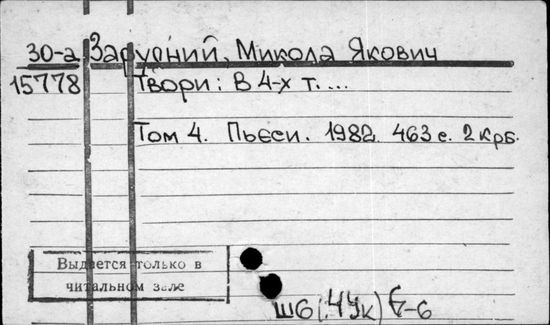 30-а Зарудний, Микола Якович
15778 Твори: В 4-х т. ...
Том 4. Пьєси. 1982. 463 с. 2 крб.
Выдается только в
читальном зале
Ш6(.4Ук)6-6